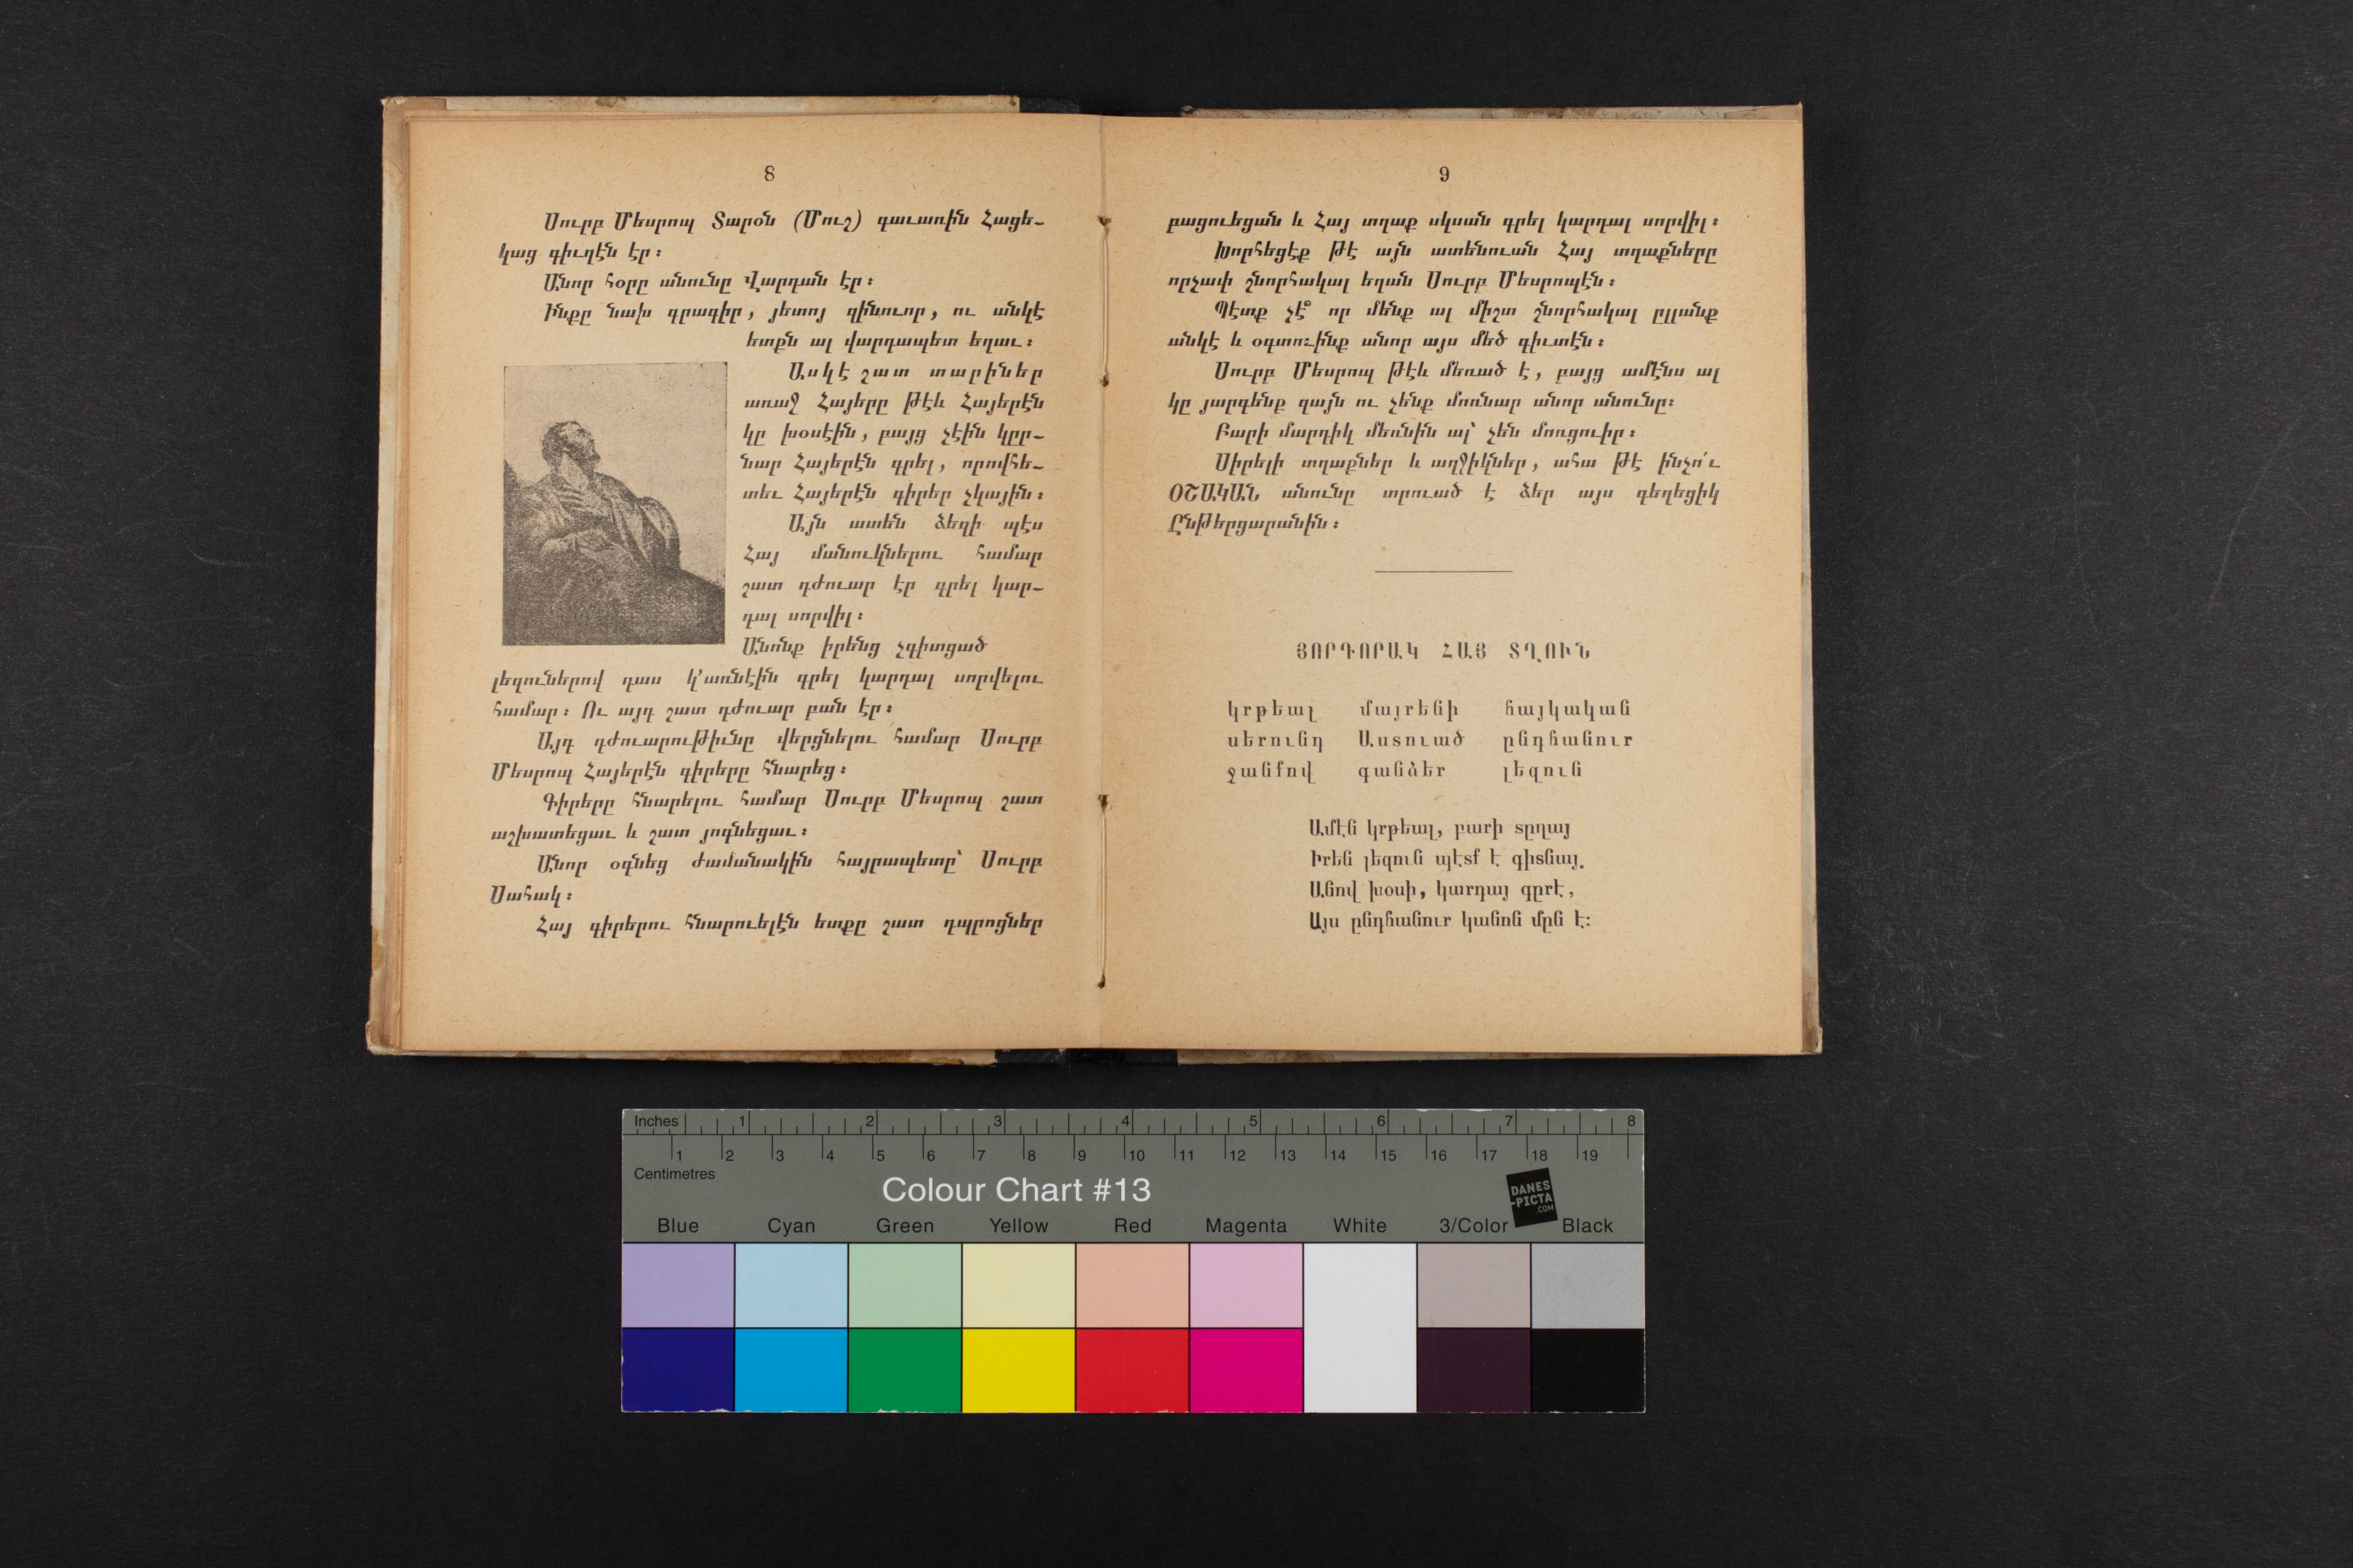 8
Սուրբ Մեսրոպ Տարօն (Մուշ) գաւառին Հացե-
կաց գիւղէն էր։
Անոր հօրը անունը Վարդան էր։
Ինքը նախ գրագիր, յետոյ զինուոր, ու անկէ
ետքն ալ վարդապետ եղաւ։
Ասկէ շատ տարիներ
առաջ Հայերը թէև Հայերէն
կը խօսէին, բայց չէին կըր-
նար Հայերէն գրել, որովհե-
տեւ Հայերէն գիրեր չկային։
Այն ատեն ձեզի պէս
Հայ մանուկներու համար
շատ դժուար էր գրել կար-
դալ սորվիլ։
Անոնք իրենց չգիտցած
լեզուներով դաս կ՚առնէին գրել կարդալ սորվելու
համար։ Ու այդ շատ դժուար բան էր։
Այդ դժուարութիւնը վերցնելու համար Սուրբ
Մեսրոպ Հայերէն գիրերը հնարեց։
Գիրերը հնարելու համար Սուրբ Մեսրոպ շատ
աշխատեցաւ և շատ յոգնեցաւ։
Անոր օգնեց ժամանակին հայրապետը՝ Սուրբ
Սահակ։
Հայ գիրերու հնարուելէն ետքը շատ դպրոցներ
9
բացուեցան և Հայ տղաք սկսան գրել կարդալ սորվիլ։
Խորհեցէք թէ այն ատենուան Հայ տղաքները
որչափ շնորհակալ եղան Սուրբ Մեսրոպէն։
Պէտք չէ՞ որ մենք ալ միշտ շնորհակալ ըլլանք
անկէ և օգտուինք անոր այս մեծ գիւտէն։
Սուրբ Մեսրոպ թէև մեռած է, բայց ամէնս ալ
կը յարգենք զայն ու չենք մոռնար անոր անունը։
Բարի մարդիկ մեռնին ալ՝ չեն մոռցուիր։
Սիրելի տղաքներ և աղջիկներ, ահա թէ ինչո՛ւ
ՕՇԱԿԱՆ անունը տրուած է ձեր այս գեղեցիկ
Ընթերցարանին։
ՅՈՐԴՈՐԱԿ ՀԱՅ ՏՂՈՒՆ
կրթեալ մայրենի հայկական
սերունդ Աստուած ընդհանուր
ջանքով գանձեր լեզուն
Ամէն կրթեալ, բարի տըղայ
Իրեն լեզուն պէտք է գիտնայ.
Անով խօսի, կարդայ գըրէ,
Այս ընդհանուր կանոն մըն է։
Inches 1 2 3 4 5 6 7 8
1 2 3 4 5 6 7 8 9 10 11 12 13 14 15 16 17 18 19
Centimetres
Colour Chart #13
DANES
-PICTA
.COM
Blue Cyan Green Yellow Red Magenta White 3/Color Black